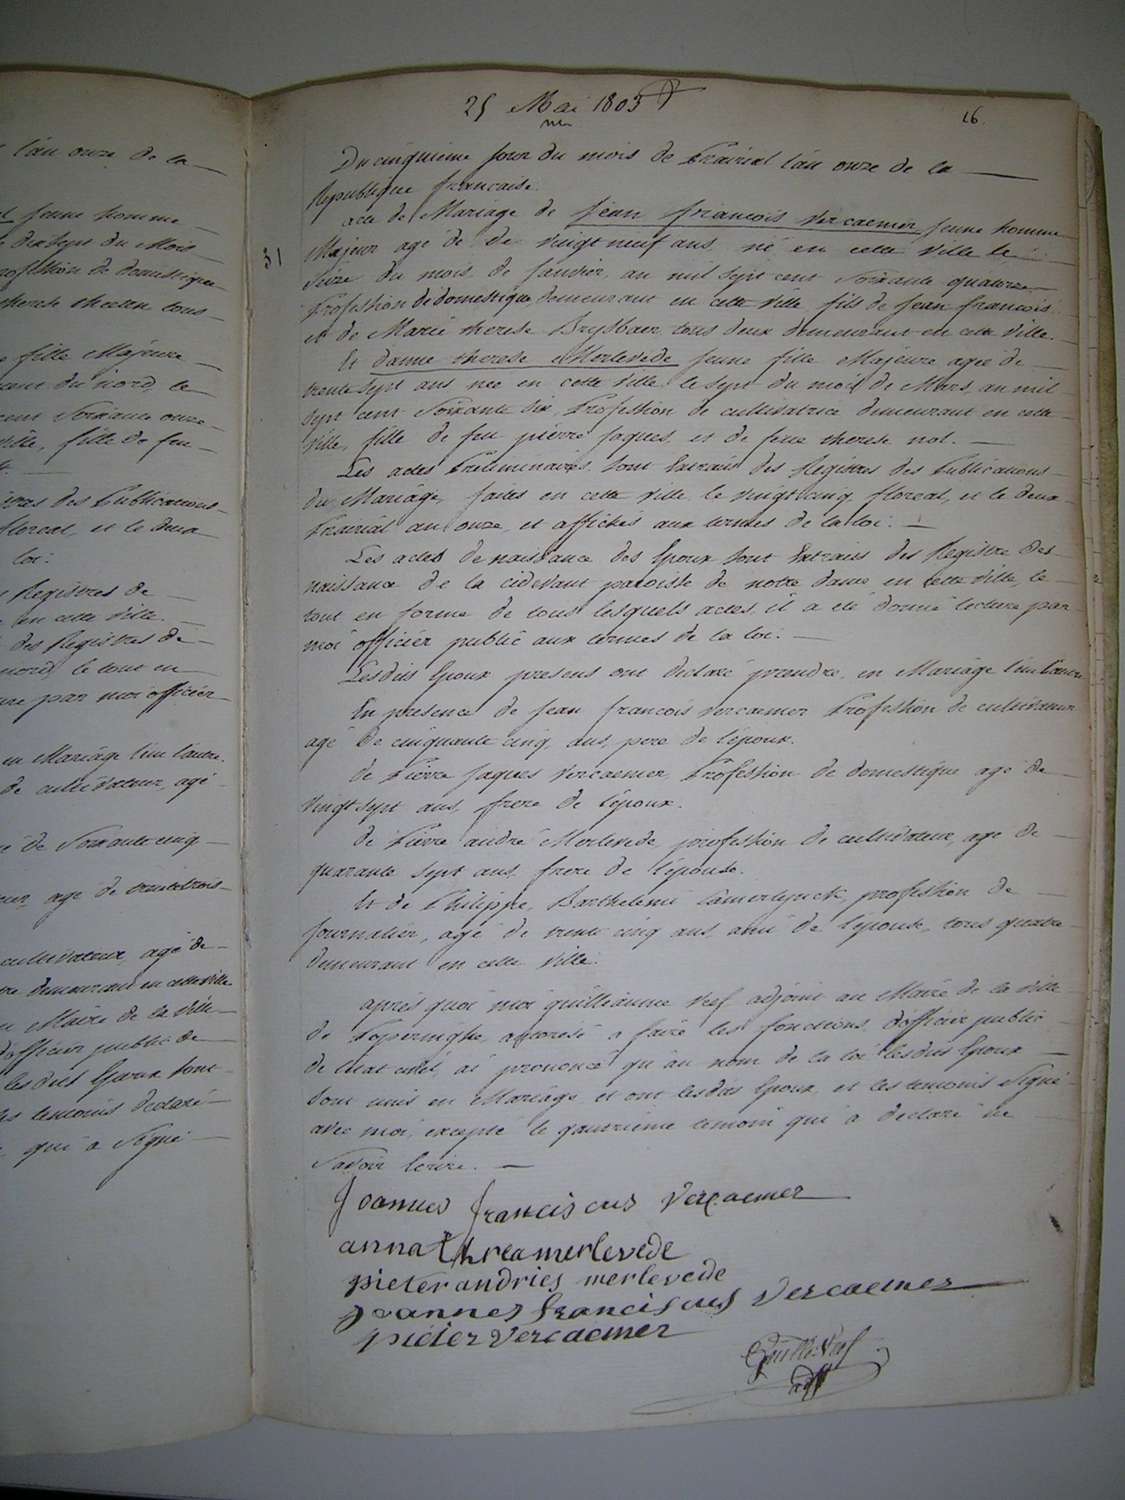 25 Mai 1803
16
l'an onze de la
jeune homme
dix sept du Mois
profession de domestique
tous
fille Majeure
du nord le
cent Soixante onze
ville, fille de feu
des Publications
floreal, et le deux
loi.
Registres de
en cette ville.
des Registres de
nord le tout en
par moi officier
en Mariage l'un l'autre.
de cultivateur, agé
de Soixante cinq
agé de trente trois
cultivateur, agé de
demeurant en cette ville
Maire de la ville
d'officier public de
lesdits Epoux sont
les temoins declaré
qui a Signé
Du cinquieme jour du mois de Prairial l'an onze de la
Republique francaise.
acte de Mariage de jean francois vercaemer jeune homme
31
Majeur agé de de vingt neuf ans, né en cette ville le
Seize du mois de janvier, an mil sept cent Soixante quatorze
Profession de domestique demeurant en cette ville fils de jean francois
et de Marie therese Brysbaer tous deux demeurant en cette ville.
Et d'anne therese Merlevede jeune fille Majeure agée de
trente sept ans née en cette ville le sept du mois de Mars, an mil
sept cent Soixante six, Profession de cultivatrice demeurant en cette
ville, fille de feu pierre jaques et de feue therese nol.
Les actes Preliminaires Sont Extraits des Registres des Publications
du Mariage, faites en cette ville le vingt cinq floreal, et le deux
Prairial an onze, et affichés aux termes de la loi.
Les actes de naissance des Epoux Sont Extraits des Registre des
naissance de la cidevant paroisse de notre dame en cette ville, le
tout en forme de tous lesquels actes, il a eté donné lecture par
moi officier public aux termes de la loi.
Lesdits Epoux presens ont declaré prendre en Mariage l'un l'autre
En presence de jean francois vercaemer Profession de cultivateur
agé de cinquante cinq ans, pere de l'epoux.
de Pierre jaques vercaemer, Profession de domestique agé de
vingt sept ans, frere de l'epoux.
de Pierre andré Merlevede, profession de cultivateur, agé de
quarante sept ans frere de l'epouse.
Et de Philippe Barthelemi Camerlynck, profession de
journalier, agé de trente cinq ans, ami de l'epouse, tous quatre
demeurant en cette ville.
aprés quoi moi guilleaume Nef adjoint au Maire de la ville
de Poperinghe, autorisé a faire les fonctions d'officier public
de l'etat civil, ai prononcé qu'au nom de la loi lesdits Epoux
Sont unis en Mariage et ont lesdits Epoux, et les temoins Signé
avec moi, excepté le quatrieme temoin qui a declaré ne
Savoir Ecrire.
Joannes franciscus vercaemer
anna threa merlevede
pieter andries merlevede
joannes franciscus vercaemer
pieter vercaemer
Guille Nef
adjt